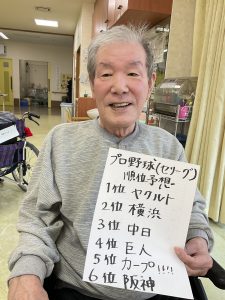 プロ野球(セリーグ)
順位予想
1位 ヤクルト
2位 横浜
3位 中日
4位 巨人
5位 カープ!!!!
6位 阪神